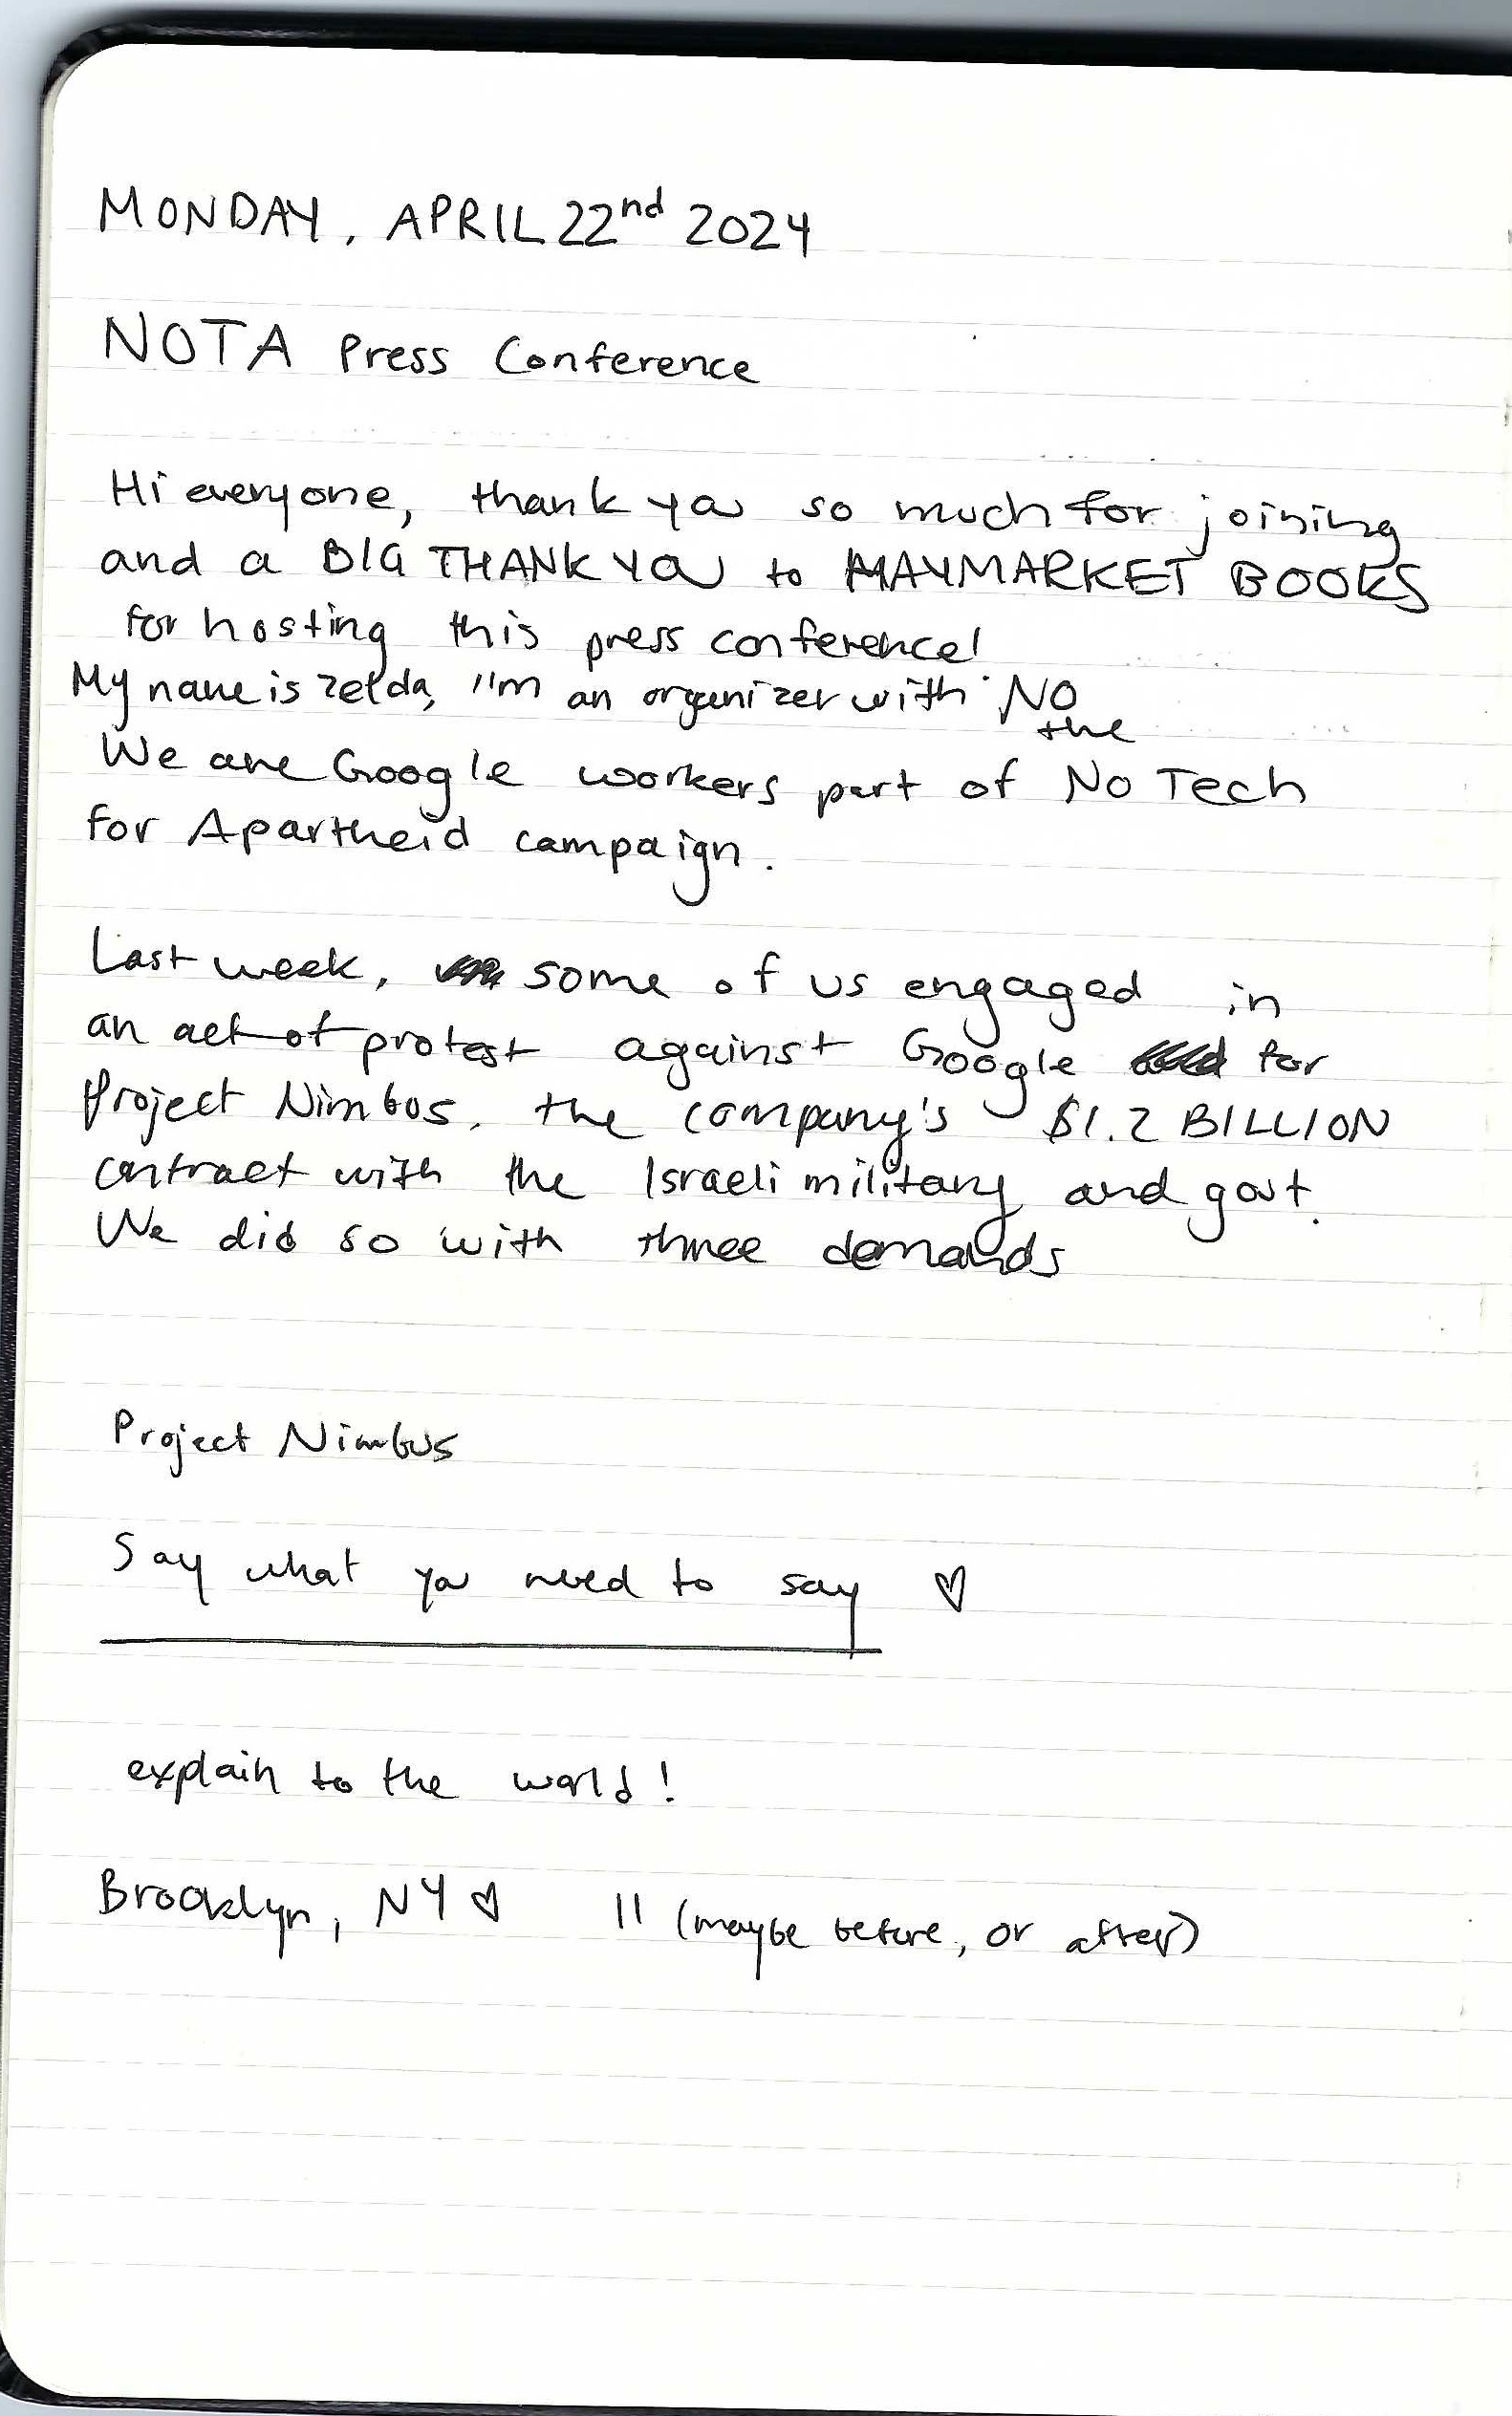 MONDAY, APRIL 22nd 2024
NOTA Press Conference
Hi everyone, thank you so much for joining
and a BIG THANK YOU to HAYMARKET BOOKS
for hosting this press conference!
My name is Zelda, I'm an organizer with NO
the
We are Google workers part of No Tech
for Apartheid campaign.
Last week, some of us engaged in
an act of protest against Google for
Project Nimbus, the company's $1.2 BILLION
contract with the Israeli military and govt.
We did so with three demands
Project Nimbus
Say what you need to say ♡
explain to the world!
Brooklyn, NY ♡ || (maybe before, or after)